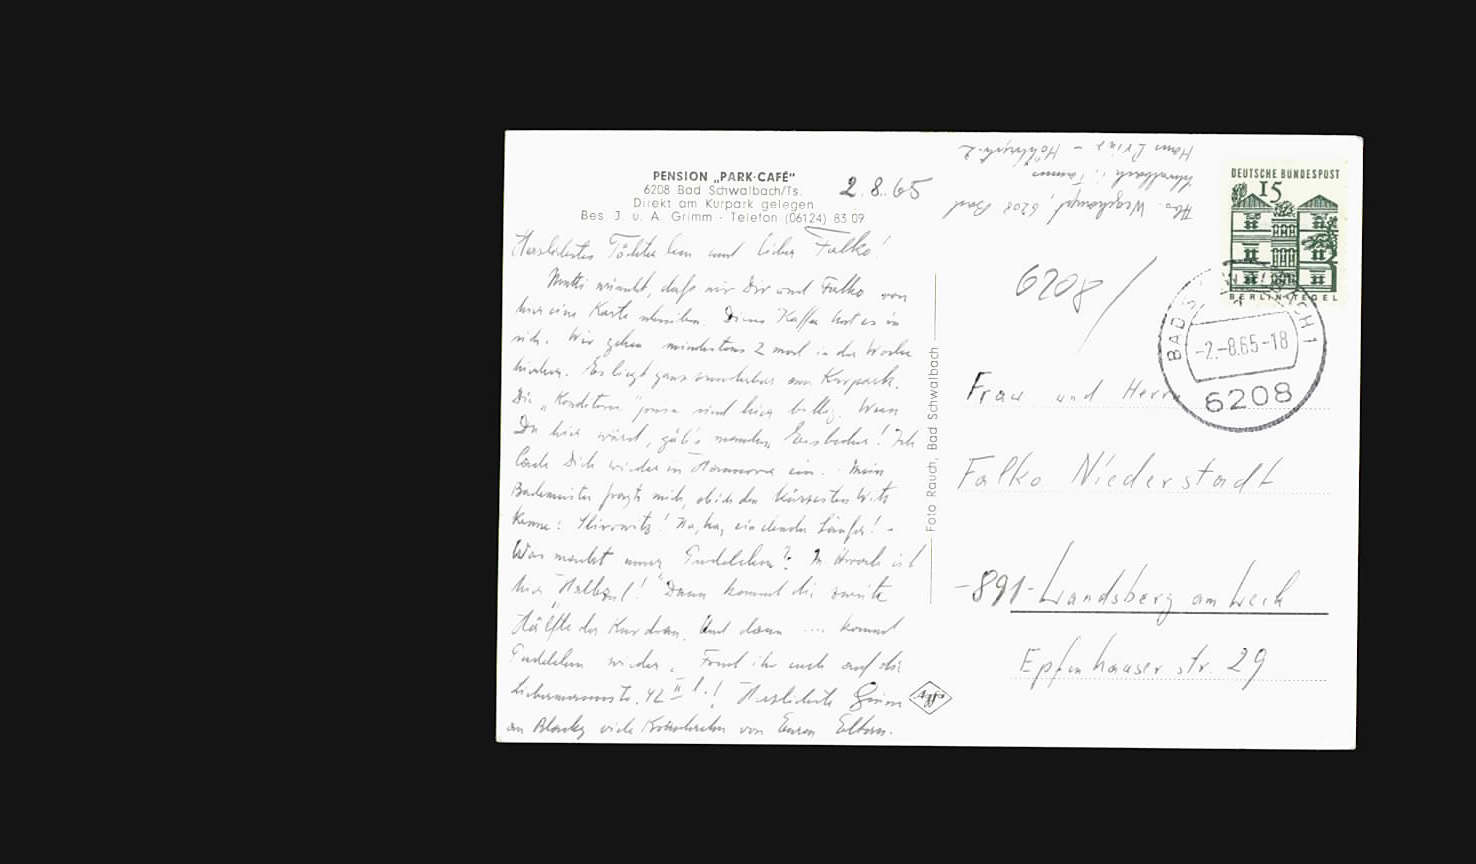 PENSION „PARK-CAFÉ“
6208 Bad Schwalbach/Ts.
Direkt am Kurpark gelegen
Bes. J. u. A. Grimm - Telefon (06124) 83 09
2.8.65
und lieber Falko!
Mutti wünscht, daß wir Dir und Falko von
hier eine Karte schreiben. Dieses Kaffee hat es in
sich. Wir gehen mindestens 2 mal in der Woche
hierher. Es liegt ganz wunderbar am Kurpark.
Die „Konditorei" sind hier billig. Wenn
Du hier wärst, gäb's manchen Eisbecher! Ich
lade Dich wieder in Hannover ein. Mein
Bademeister fragte mich, ob ich den kürzesten Witz
kenne: Haha, ein Läufer! -
Was macht unser Pudelchen? Mittwoch ist
hier "Halbzeit!" Dann kommt die zweite
Hälfte der Kur dran. Und dann .... kommt
Pudelchen wieder. Freut ihr euch auf die
42 II l.! Herzlichste Grüße
an Blacky viele von Euren Eltern.
Foto Rauch, Bad Schwalbach
Agfa
Hans - 2
Schwalbach i. Taunus
Abs. 6208 Bad
DEUTSCHE BUNDESPOST
15
BERLIN-TEGEL
6208/
BAD SCHWALBACH 1
-2.-8.65-18
6208
Frau und Herrn
Falko Niederstadt
-891- Landsberg am Lech
Epfenhauser str 29